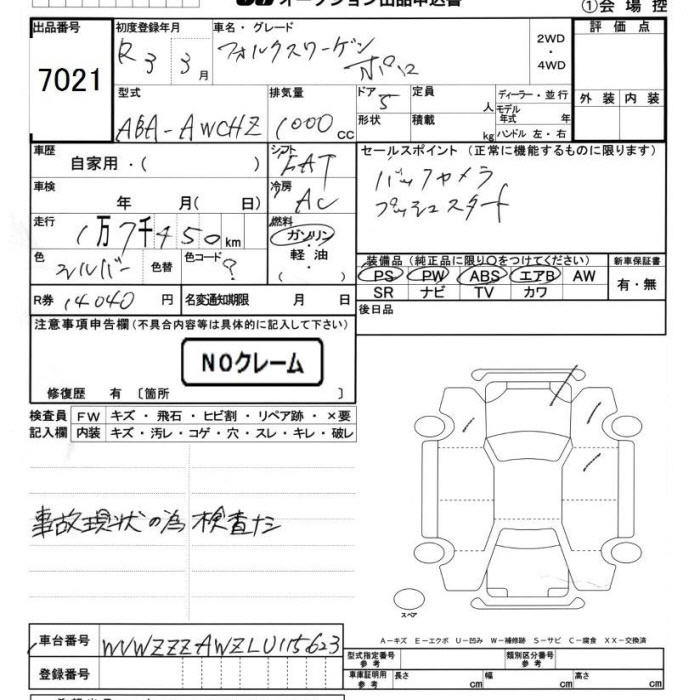 オークション出品申込書
①会場控
出品番号
7021
初度登録年月
R3 3月
車名・グレード
フォルクスワーゲン
ポロ
2WD
・
4WD
評価点
外装 内装
型式
ABA-AWCHZ
排気量
1000cc
ドア
5
定員
人
形状
積載
kg
ディーラー・並行
モデル年式 年
ハンドル 左・右
車歴
自家用・( )
シフト
FAT
車検
年 月( 日)
冷房
AC
走行
1万7千450km
燃料
ガソリン
・
軽油
( )
色
シルバー
色替
色コード
?
R券 14040円
名変通知期限 月 日
セールスポイント(正常に機能するものに限ります)
バックカメラ
プッシュスタート
装備品(純正品に限り○をつけてください)
PS PW ABS エアB AW
SR ナビ TV カワ
新車保証書
有・無
後日品
注意事項申告欄(不具合内容等は具体的に記入して下さい)
NOクレーム
修復歴 有〔箇所 〕
検査員
記入欄
FW キズ・飛石・ヒビ割・リペア跡・×要
内装 キズ・汚レ・コゲ・穴・スレ・キレ・破レ
事故現状の為 検査ナシ
スペア
A−キズ E−エクボ U−凹み W−補修跡 S−サビ C−腐食 XX−交換済
車台番号
WVWZZZAWZLU115623
登録番号
型式指定番号
参考
類別区分番号
参考
車庫証明用
参考
長さ cm 幅 cm 高さ cm